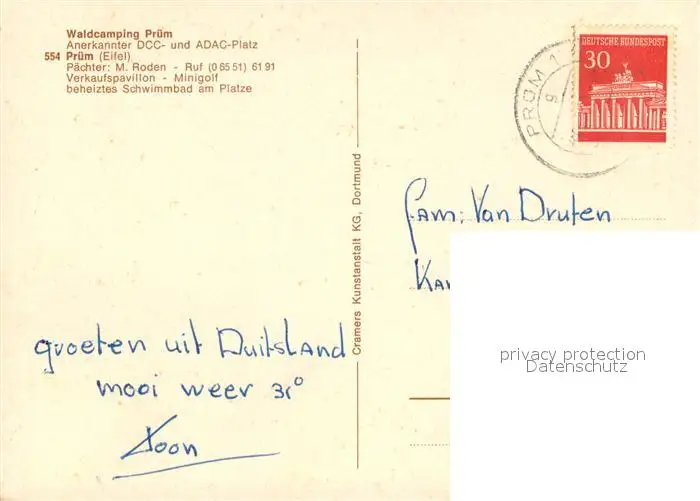 Waldcamping Prüm
Anerkannter DCC- und ADAC-Platz
554 Prüm (Eifel)
Pächter: M. Roden - Ruf (0 65 51) 61 91
Verkaufspavillon - Minigolf
beheiztes Schwimmbad am Platze
groeten uit Duitsland
mooi weer 31°
Toon
Cramers Kunstanstalt KG, Dortmund
DEUTSCHE BUNDESPOST
30
PRÜM 1
Fam: Van Druten
privacy protection
Datenschutz